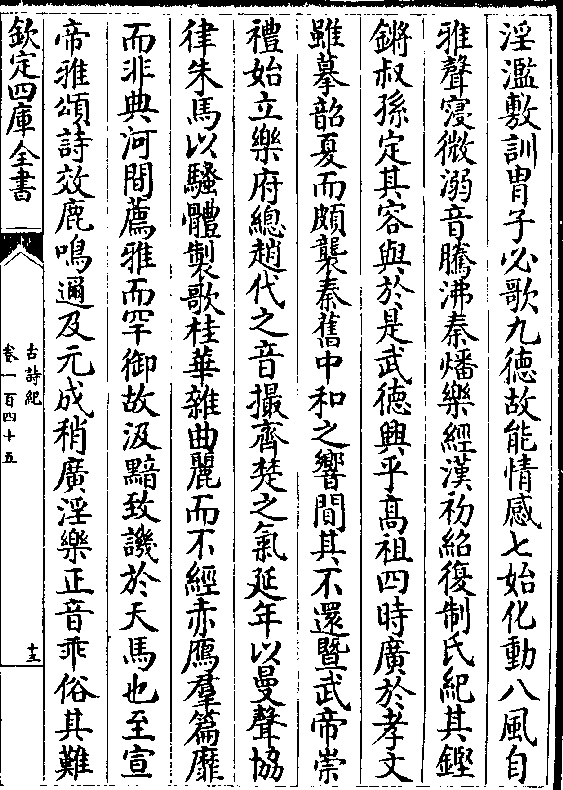 淫濫敷訓胄子必歌九德故能情感七始化動八風自
雅聲寖微溺音騰沸秦燔樂經漢初紹復制氏紀其鏗
鏘叔孫定其容與於是武德興乎高祖四時廣於孝文
雖摹韶夏而頗襲秦舊中和之響闃其不還暨武帝崇
禮始立樂府總趙代之音撮齊楚之氣延年以曼聲協
律朱馬以騷體製歌桂華雜曲麗而不經赤鴈羣篇靡
而非典河間薦雅而罕御故汲黯致譏於天馬也至宣
帝雅頌詩效鹿鳴邇及元成稍廣淫樂正音乖俗其難
欽定四庫全書
古詩紀
卷一百四十五
十三